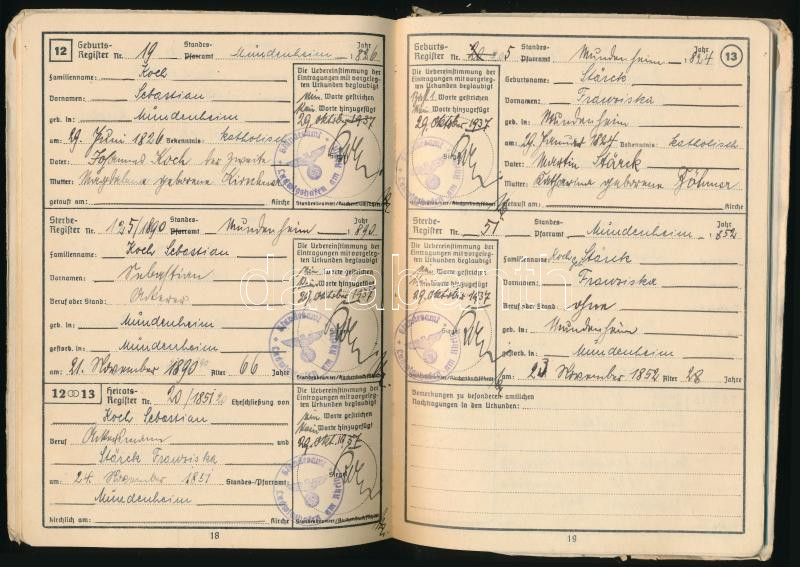 12 Geburts- Register Nr. 19 Standes- Pfarramt Mundenheim Jahr 1826
Familienname: Koch
Vornamen: Sebastian
geb. in: Mundenheim
am: 29. Juni 1826 Bekenntnis: katholisch
Vater: Johannes Koch der Zweite
Mutter: Magdalena geborene
getauft am: Kirche
Die Uebereinstimmung der
Eintragungen mit vorgeleg-
ten Urkunden beglaubigt
Kein Worte gestrichen
Kein Worte hinzugefügt
29. Oktober 1937
Standesamt Ludwigshafen am Rhein
Siegel
Standesbeamter/Kirchenbuchführer
Sterbe- Register 125/1890 Standes- Pfarramt Mundenheim Jahr 1890
Familienname: Koch Sebastian
Vornamen: Sebastian
Beruf oder Stand: Ackerer
geb. in: Mundenheim
gestorb. in: Mundenheim
am: 21. November 1890 Alter 66 Jahre
Die Uebereinstimmung der
Eintragungen mit vorgeleg-
ten Urkunden beglaubigt
Kein Worte gestrichen
Kein Worte hinzugefügt
29. Oktober 1937
Standesamt Ludwigshafen am Rhein
Siegel
Standesbeamter/Kirchenbuchführer
12 ∞ 13 Heirats- Register Nr. 20/1851 Eheschließung von
Koch Sebastian
Beruf Ackersmann und
Stärck Franziska
am 24. November 1851 Standes-/Pfarramt
Mundenheim
kirchlich am: Kirche
Die Uebereinstimmung der
Eintragungen mit vorgeleg-
ten Urkunden beglaubigt
Kein Worte gestrichen
Kein Worte hinzugefügt
29. Okt. 1937
Standesamt Ludwigshafen am Rhein
Siegel
Standesbeamter/Kirchenbuchführer
18
Geburts- Register Nr. 5 Standes- Pfarramt Mundenheim Jahr 1824 13
Geburtsname: Stärck
Vornamen: Franziska
geb. in: Mundenheim
am: 29. Januar 1824 Bekenntnis: katholisch
Vater: Martin Stärck
Mutter: Katharina geborene Böhmer
getauft am: Kirche
Die Uebereinstimmung der
Eintragungen mit vorgeleg-
ten Urkunden beglaubigt
1 Worte gestrichen
Kein Worte hinzugefügt
29. Oktober 1937
Standesamt Ludwigshafen am Rhein
Siegel
Standesbeamter/Kirchenbuchführer
Sterbe- Register Nr. 51 Standes- Pfarramt Mundenheim Jahr 1852
Familienname: Koch Stärck
Vornamen: Franziska
Beruf oder Stand: ohne
geb. in: Mundenheim
gestorb. in: Mundenheim
am: 23. November 1852 Alter 28 Jahre
Die Uebereinstimmung der
Eintragungen mit vorgeleg-
ten Urkunden beglaubigt
Kein Worte gestrichen
Kein Worte hinzugefügt
29. Oktober 1937
Standesamt Ludwigshafen am Rhein
Siegel
Standesbeamter/Kirchenbuchführer
Bemerkungen zu besonderen amtlichen
Nachtragungen in den Urkunden:
19
darabanth